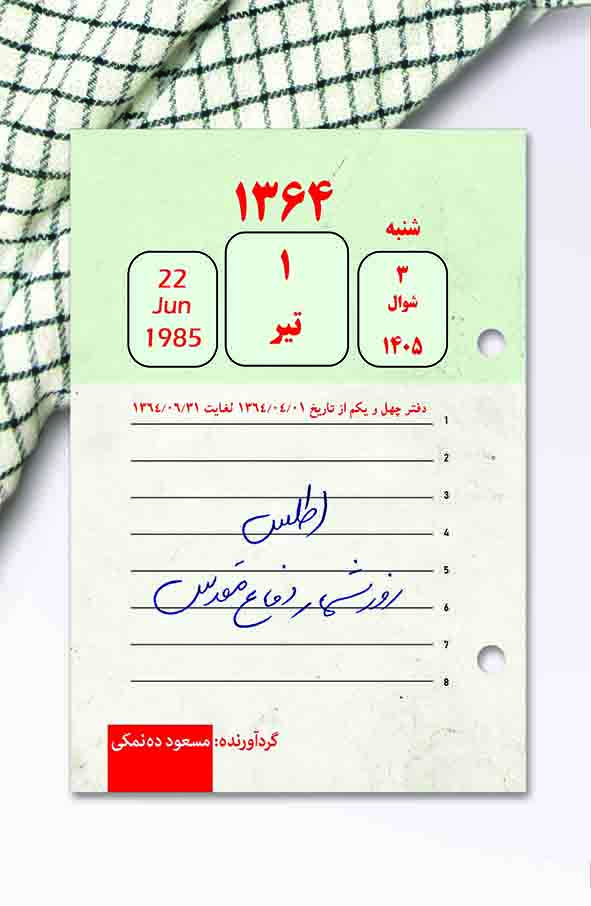 ۱۳۶۴
شنبه
۳
شوال
۱۴۰۵
۱
تیر
22
Jun
1985
دفتر چهل و یکم از تاریخ ۱۳۶۴/۰۴/۰۱ لغایت ۱۳۶۴/۰۶/۳۱
1
2
3
اطلس
4
5
روزشمار دفاع مقدس
6
7
8
گردآورنده: مسعود ده‌نمکی